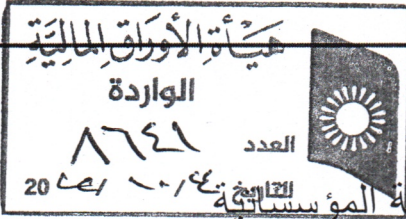 هيأة الأوراق المالية
الواردة
العدد ٨٦٤١
التاريخ ٢٤/١٠/ 20
المؤسساتية